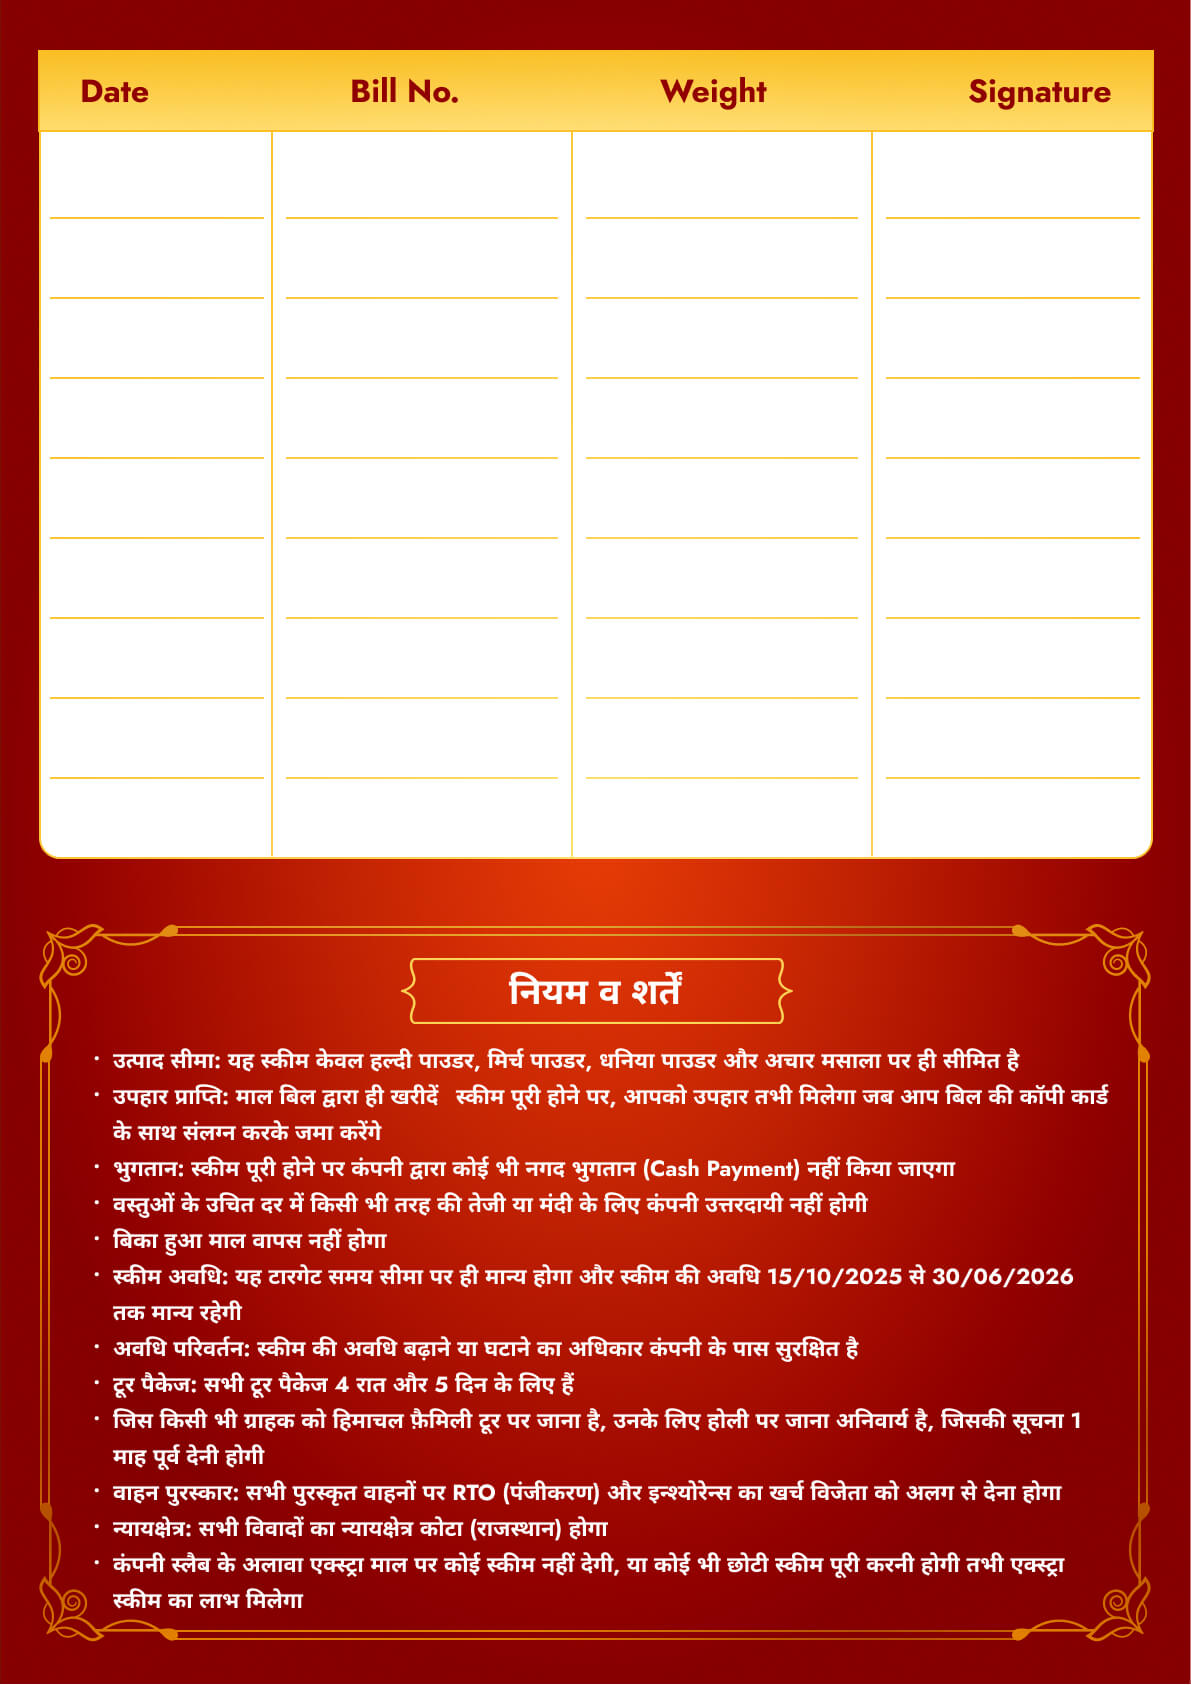 Date Bill No. Weight Signature
नियम व शर्तें
· उत्पाद सीमा: यह स्कीम केवल हल्दी पाउडर, मिर्च पाउडर, धनिया पाउडर और अचार मसाला पर ही सीमित है
· उपहार प्राप्ति: माल बिल द्वारा ही खरीदें स्कीम पूरी होने पर, आपको उपहार तभी मिलेगा जब आप बिल की कॉपी कार्ड
के साथ संलग्न करके जमा करेंगे
· भुगतान: स्कीम पूरी होने पर कंपनी द्वारा कोई भी नगद भुगतान (Cash Payment) नहीं किया जाएगा
· वस्तुओं के उचित दर में किसी भी तरह की तेजी या मंदी के लिए कंपनी उत्तरदायी नहीं होगी
· बिका हुआ माल वापस नहीं होगा
· स्कीम अवधि: यह टारगेट समय सीमा पर ही मान्य होगा और स्कीम की अवधि 15/10/2025 से 30/06/2026
तक मान्य रहेगी
· अवधि परिवर्तन: स्कीम की अवधि बढ़ाने या घटाने का अधिकार कंपनी के पास सुरक्षित है
· टूर पैकेज: सभी टूर पैकेज 4 रात और 5 दिन के लिए हैं
· जिस किसी भी ग्राहक को हिमाचल फ़ैमिली टूर पर जाना है, उनके लिए होली पर जाना अनिवार्य है, जिसकी सूचना 1
माह पूर्व देनी होगी
· वाहन पुरस्कार: सभी पुरस्कृत वाहनों पर RTO (पंजीकरण) और इन्श्योरेन्स का खर्च विजेता को अलग से देना होगा
· न्यायक्षेत्र: सभी विवादों का न्यायक्षेत्र कोटा (राजस्थान) होगा
· कंपनी स्लैब के अलावा एक्स्ट्रा माल पर कोई स्कीम नहीं देगी, या कोई भी छोटी स्कीम पूरी करनी होगी तभी एक्स्ट्रा
स्कीम का लाभ मिलेगा